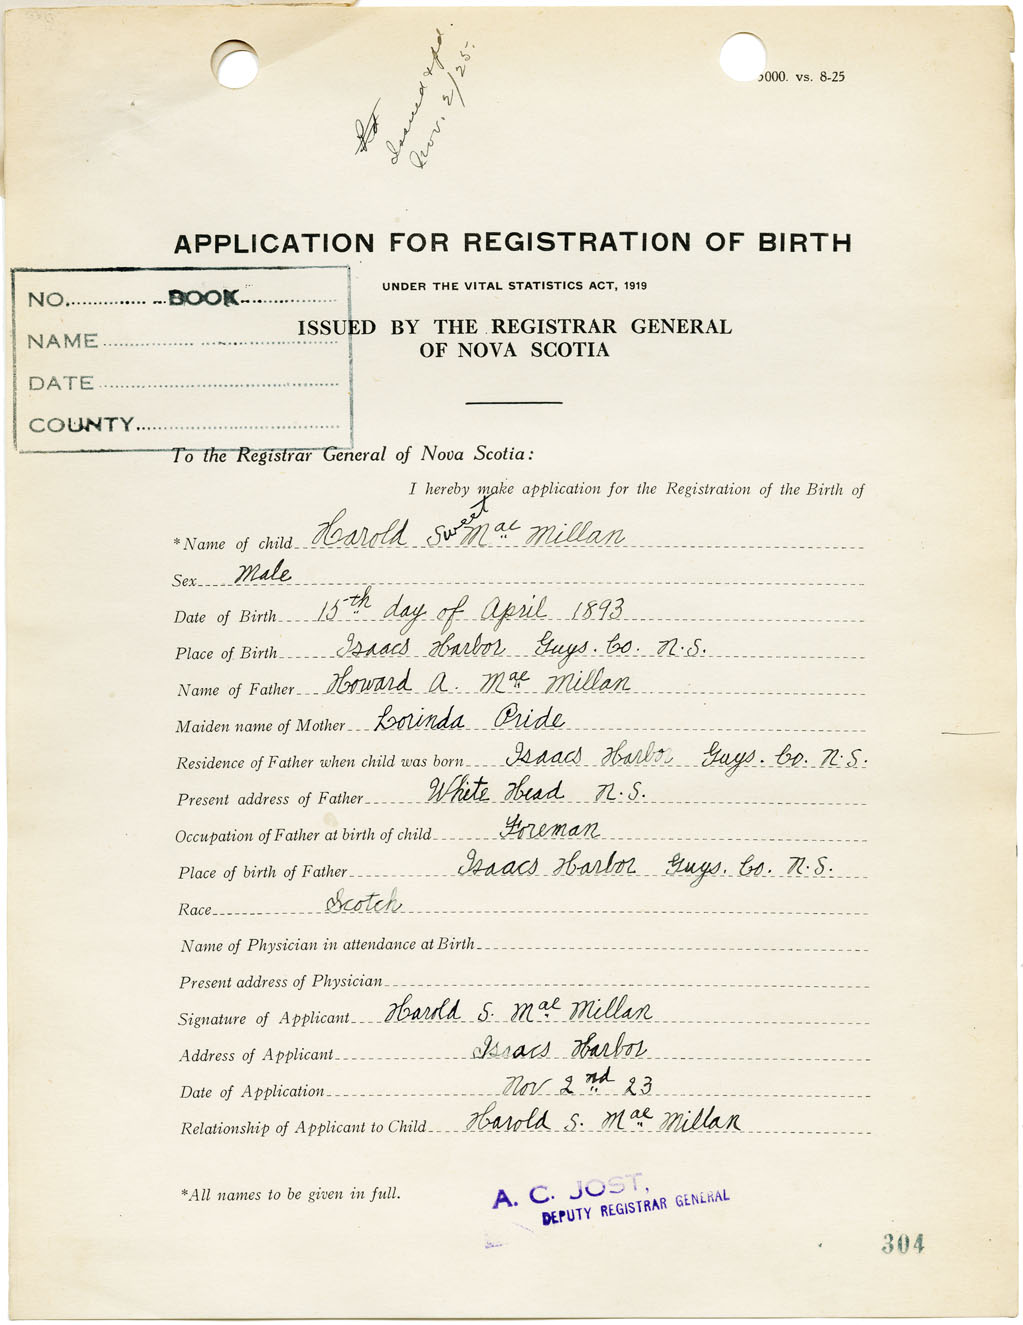 Issued & pd.
Nov. 2/25.
5000. vs. 8-25
APPLICATION FOR REGISTRATION OF BIRTH
UNDER THE VITAL STATISTICS ACT, 1919
ISSUED BY THE REGISTRAR GENERAL
OF NOVA SCOTIA
NO. BOOK
NAME
DATE
COUNTY
To the Registrar General of Nova Scotia:
I hereby make application for the Registration of the Birth of
*Name of child Harold Sweet Mac Millan
Sex Male
Date of Birth 15th day of April 1893
Place of Birth Isaacs Harbor Guys. Co. N.S.
Name of Father Howard A. Mac Millan
Maiden name of Mother Lorinda Pride
Residence of Father when child was born Isaacs Harbor Guys. Co. N.S.
Present address of Father White Head N.S.
Occupation of Father at birth of child Foreman
Place of birth of Father Isaacs Harbor Guys. Co. N.S.
Race Scotch
Name of Physician in attendance at Birth
Present address of Physician
Signature of Applicant Harold S. Mac Millan
Address of Applicant Isaacs Harbor
Date of Application Nov 2nd 23
Relationship of Applicant to Child Harold S. Mac Millan
*All names to be given in full.
A. C. JOST,
DEPUTY REGISTRAR GENERAL
304